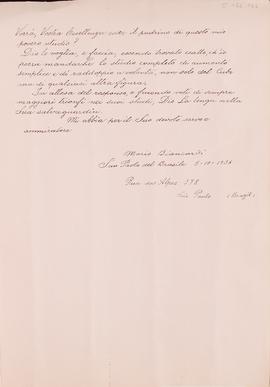 Varà, Vostra Eccellenza esser il padrino di questo mio
povero studio?
Dio lo voglia, e faccia, essendo trovato esatto, ch'io
possa mandarLe lo studio completo di aumento
semplice e di raddoppio a volontà, non solo del Cubo
ma di qualsiasi altra figura.
In attesa del responso, e facendo voti di sempre
maggiori trionfi nei suoi studi, Dio La tenga nella
Sua salvaguardia.
Mi abbia per il Suo devoto servo e
ammiratore
Mario Biancardi
San Paolo del Brasile 5-10-1934
Rua dos Alpes 178
São Paulo (Brazil)